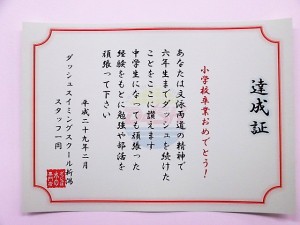 達成証
小学校卒業おめでとう！
あなたは文泳両道の精神で
六年生までダッシュを続けた
ことをここに讃えます
中学生になっても頑張った
経験をもとに勉強や部活を
頑張って下さい
平成二十九年二月
ダッシュスイミングスクール新潟
スタッフ一同